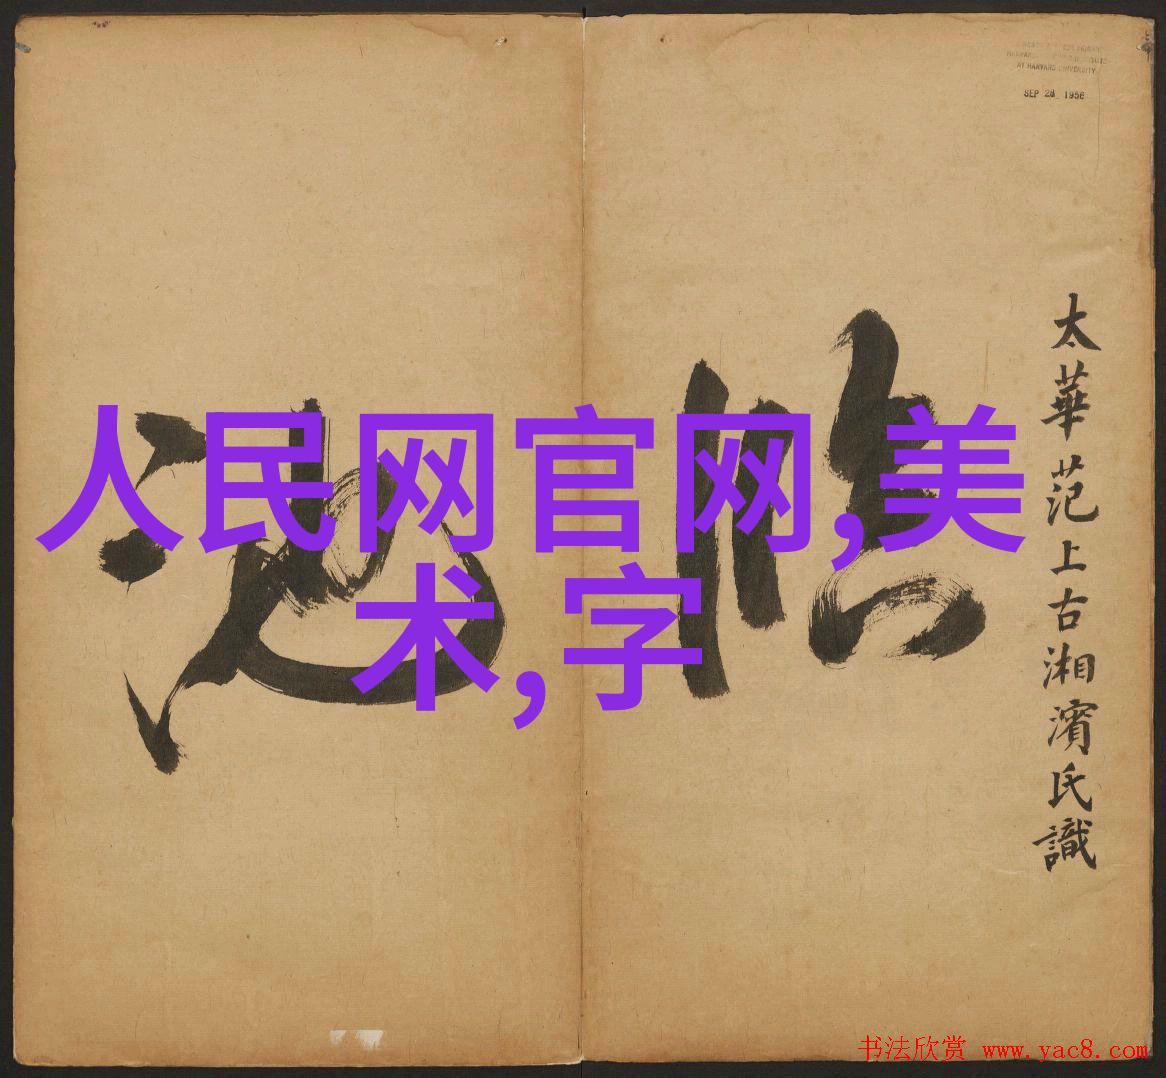 AT HARVARD UNIVERSITY
SEP 28 1956
太華范上古湘濱氏識
人民网官网,美
术,字
书法欣赏 www.yac8.com